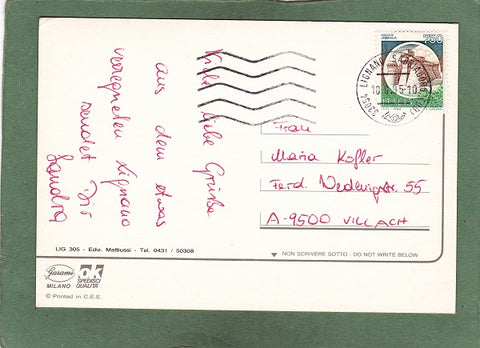 Viele liebe Grüße
aus dem etwas
verregneten Lignano
sendet Dir
Sandra
750
LIGNANO
33054
10.6.95-10
Frau
Maria Kofler
Ferd. Wedenigstr. 55
A-9500 VILLACH
LIG 305 - Ediz. Mattiussi - Tel. 0431 / 50308
NON SCRIVERE SOTTO - DO NOT WRITE BELOW
Garami
MILANO
OK
SPEDISCI
QUALITA'
© Printed in C.E.E.